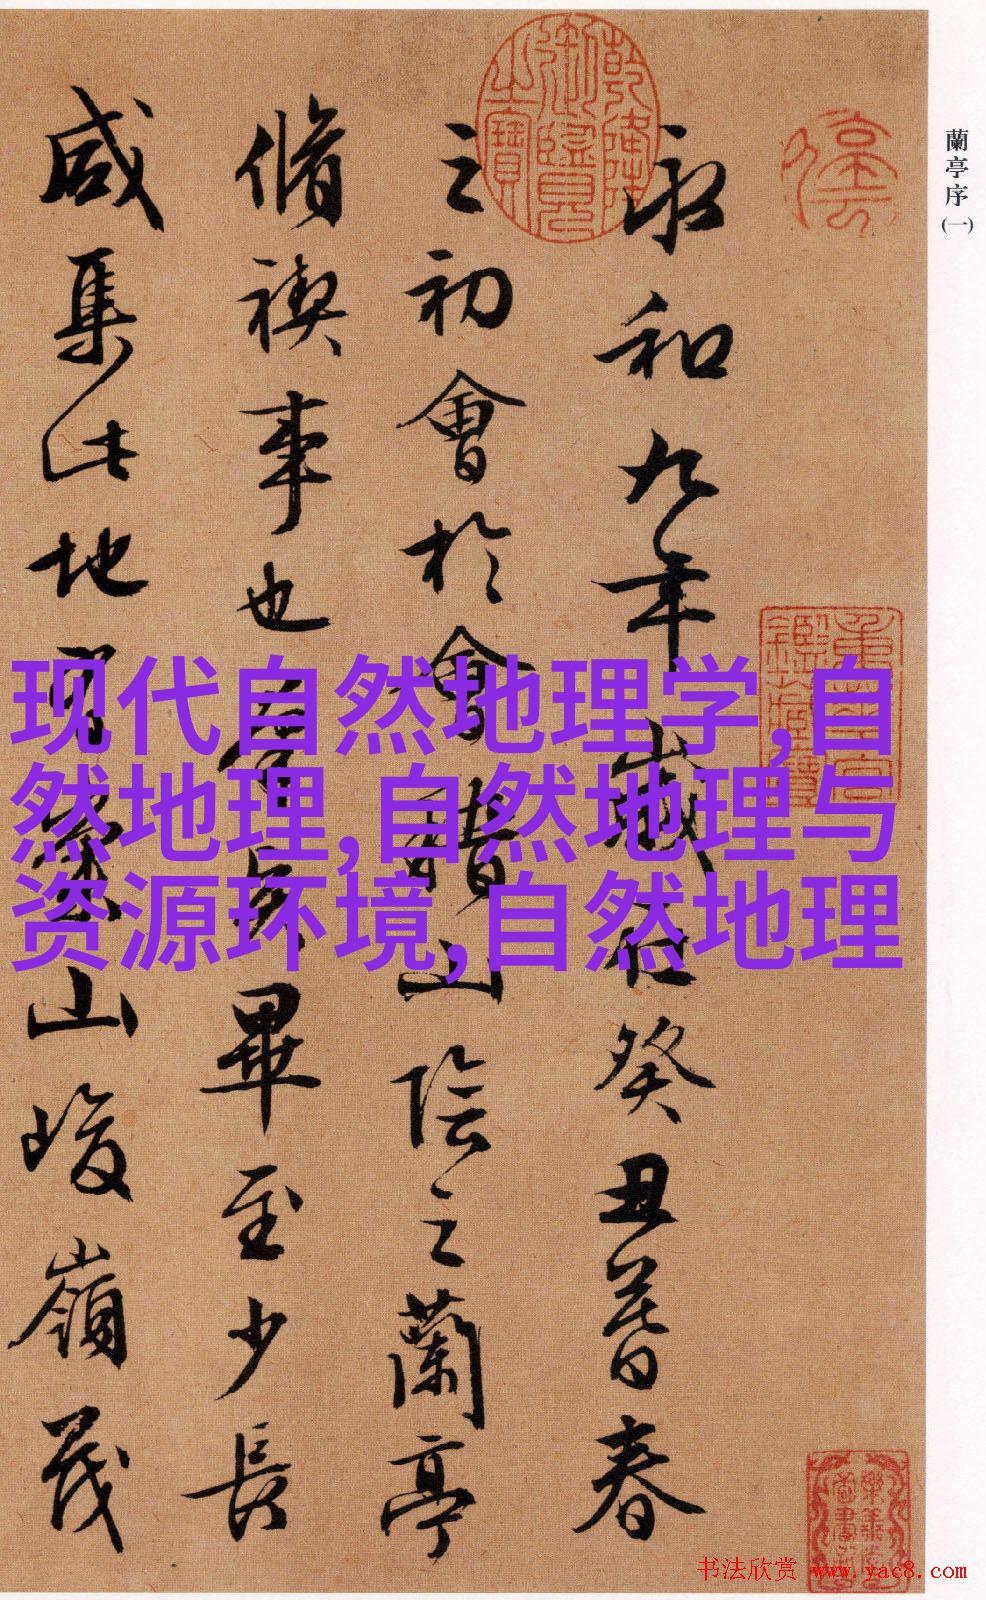 蘭亭序(一)
永和九年歲在癸丑暮春
之初會於會稽山陰之蘭亭
脩禊事也羣賢畢至少長
咸集此地有崇山峻嶺茂
乾隆御覽之寶
重華宮鑑藏寶
现代自然地理学,自
然地理,自然地理与
资源环境,自然地理
书法欣赏 www.yac8.com